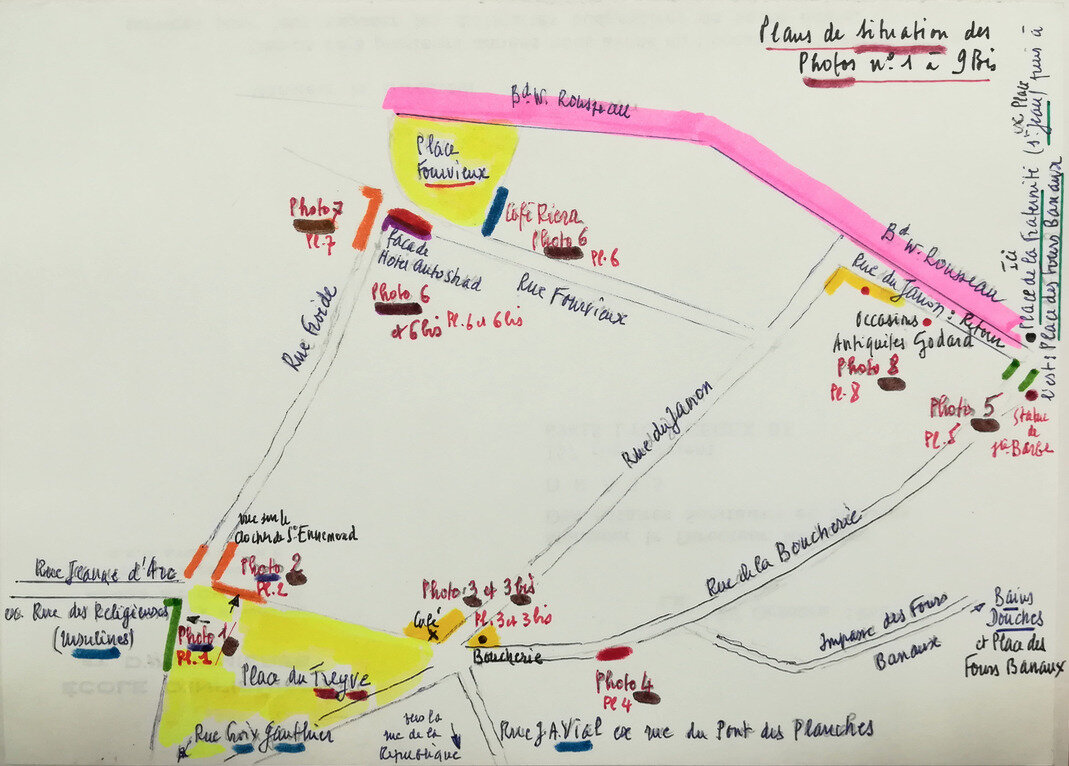 Plans de situation des
Photos n° 1 à 9 Bis
Bd W. Rousseau
Place
Fourvieux
Photo 7
Pl. 7
Café Riera
Photo 6
Pl. 6
façade
Hotel Autoshad
Photo 6
et 6 bis Pl. 6 et 6 bis
Rue Fourvieux
Rue Froide
Bd W. Rousseau
Rue du Janon : Retour
Occasions
Antiquités Godard
Photo 8
Pl. 8
Ici
Place de la Fraternité (St Jean) puis à
ex Place
l'est : Place des Fours Banaux
Photo 5
Pl. 5
Statue
de
Ste Barbe
Rue du Janon
vue sur le
clocher de St Ennemond
Photo 2
Pl. 2
Rue Jeanne d'Arc
ex. Rue des Religieuses
(Ursulines)
Photo 1
Pl. 1
Photo 3 et 3 bis
Pl. 3 et 3 bis
Café
Boucherie
Rue de la Boucherie
Impasse des Fours
Banaux
Bains
Douches
et Place des
Fours Banaux
Place du Treyve
Photo 4
Pl 4
Rue Croix Gauthier
vers la
rue de la
République
Rue J.A. Vial ex rue du Pont des Planches